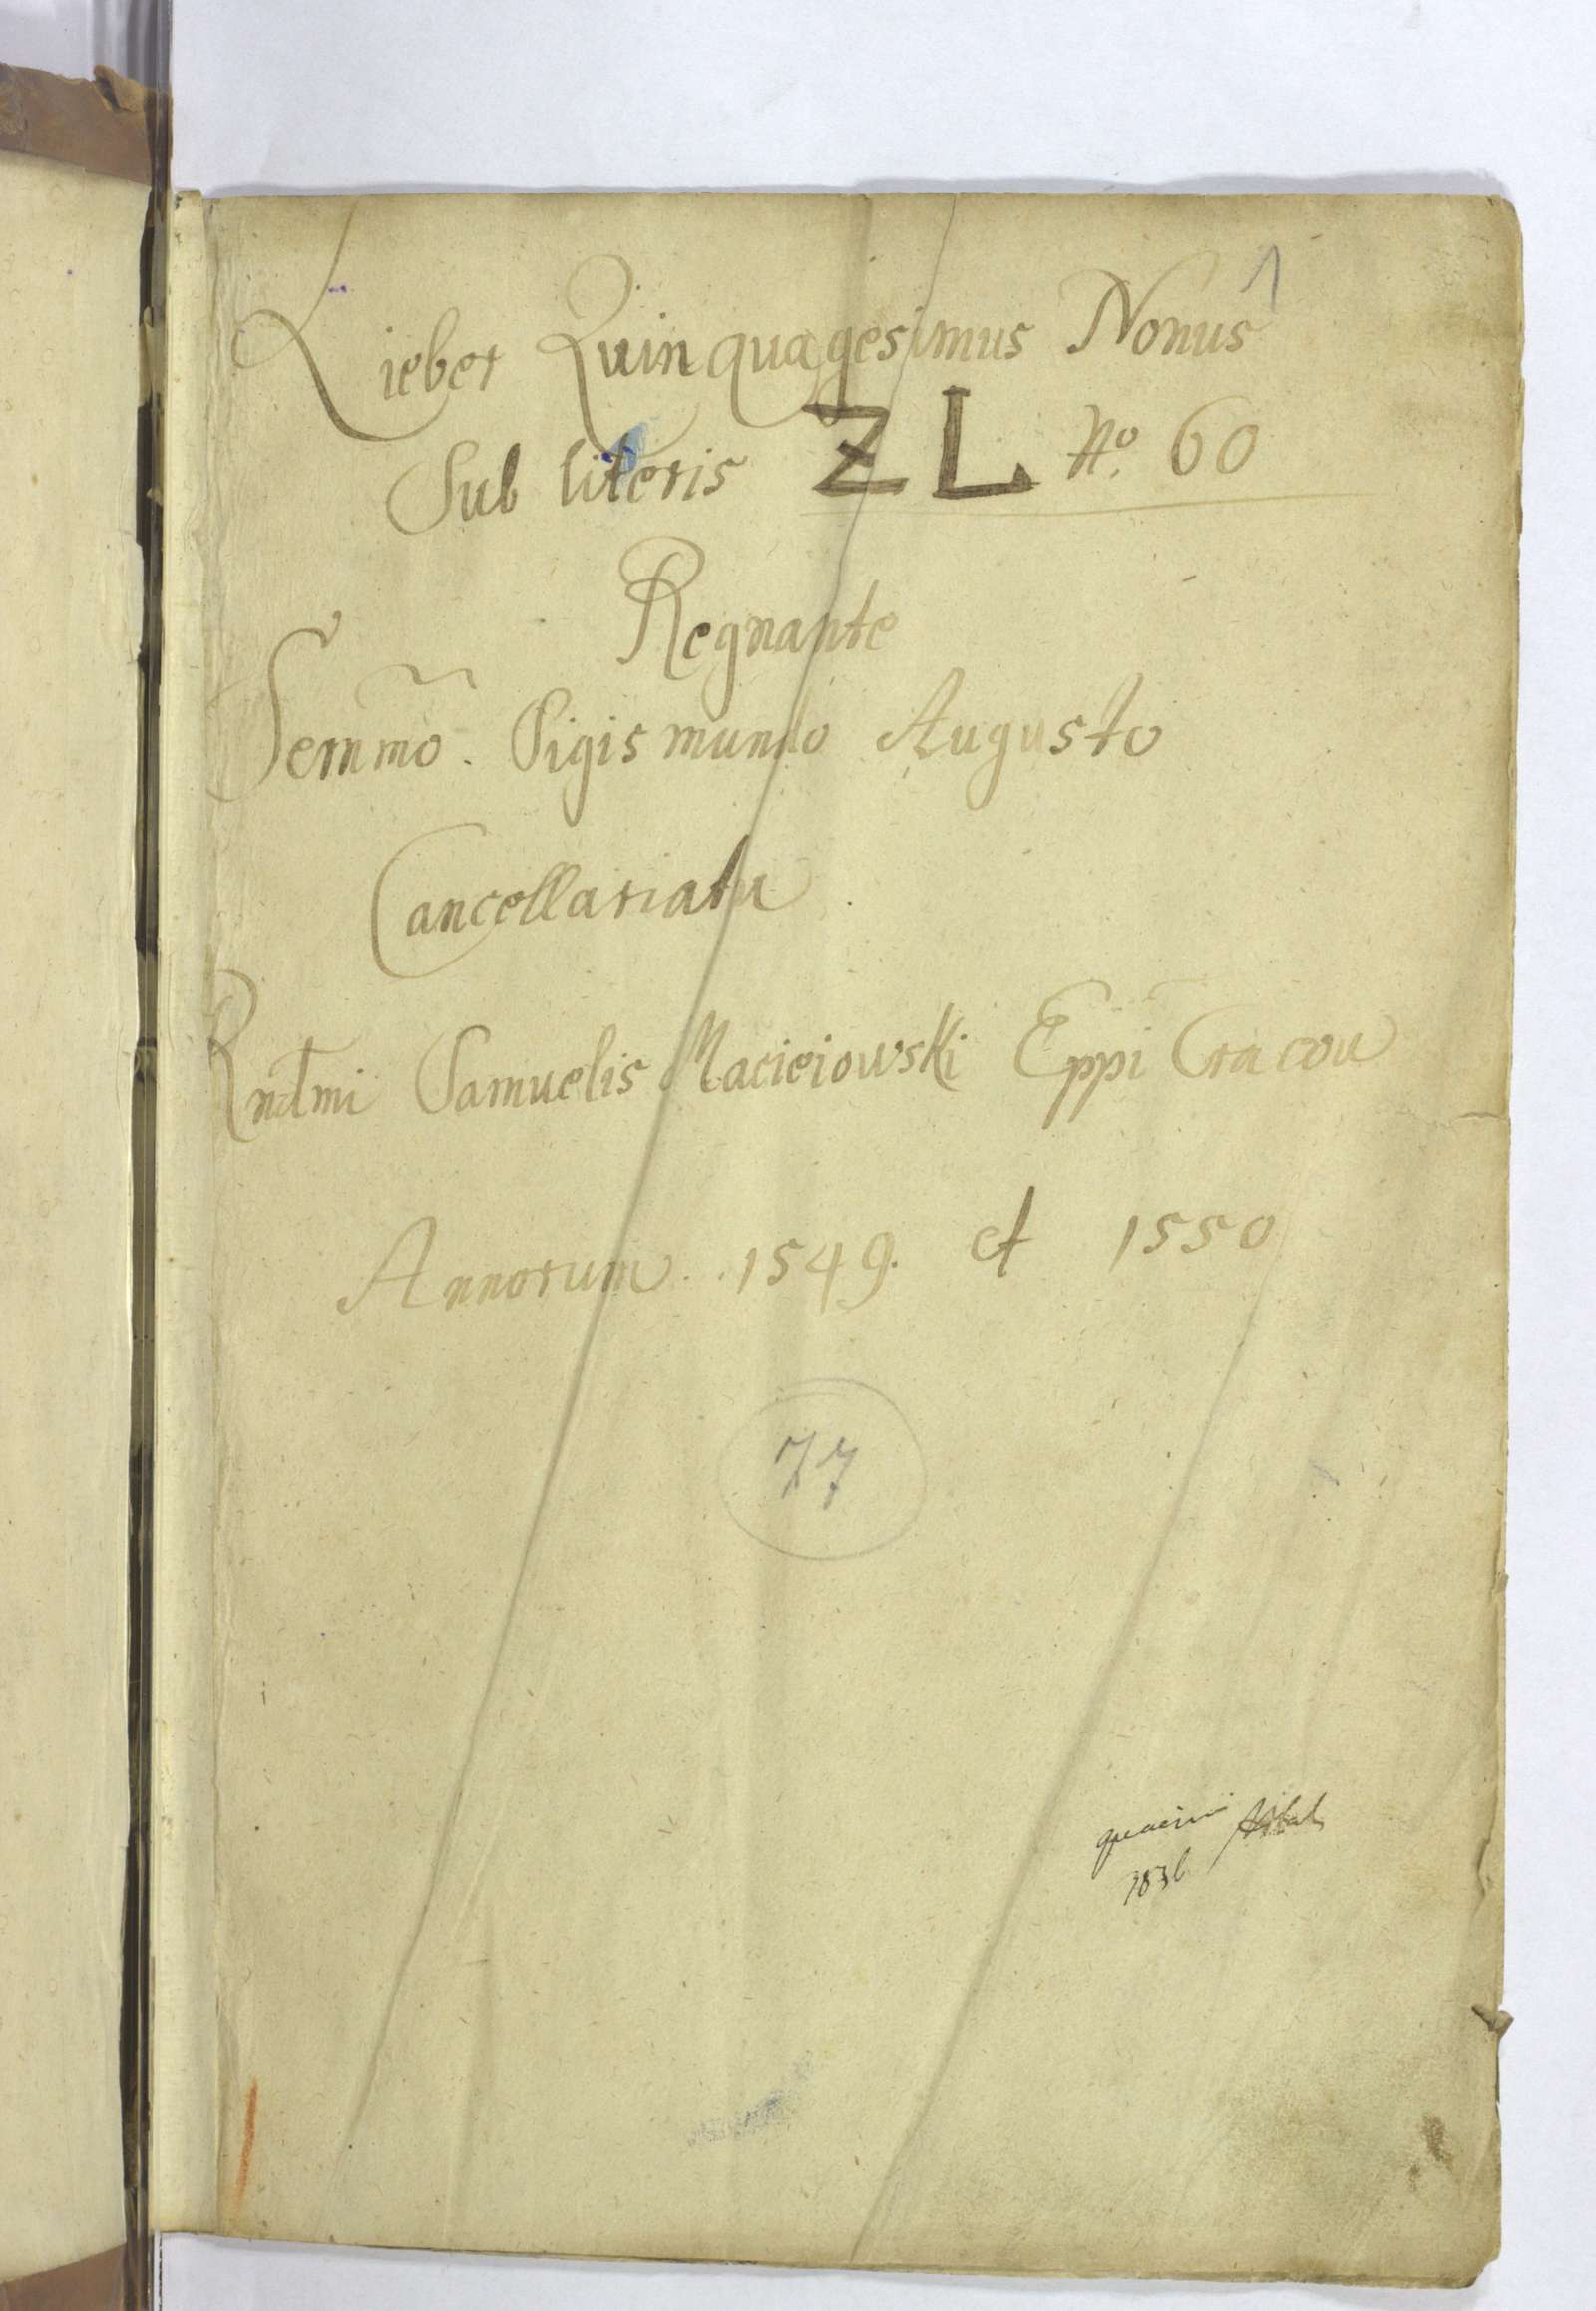 1
Lieber Quinquagesimus Nonus
Sub literis ZL No. 60
Regnante
Sernmo. Sigismundo Augusto
Cancellariatu
Rndmi Samuelis Macieiowski Eppi Cracou
Annorum 1549. et 1550
77